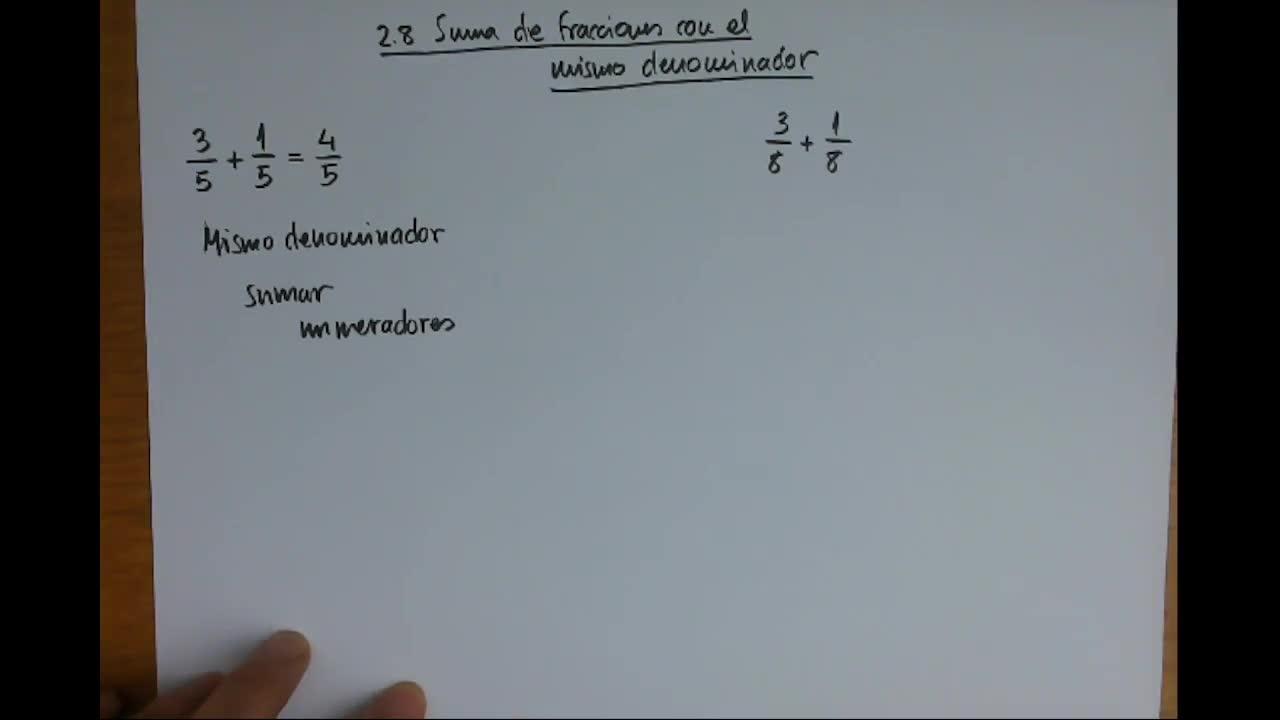 2.8 Suma de fracciones con el
mismo denominador
3/5 + 1/5 = 4/5
3/8 + 1/8
Mismo denominador
sumar
numeradores